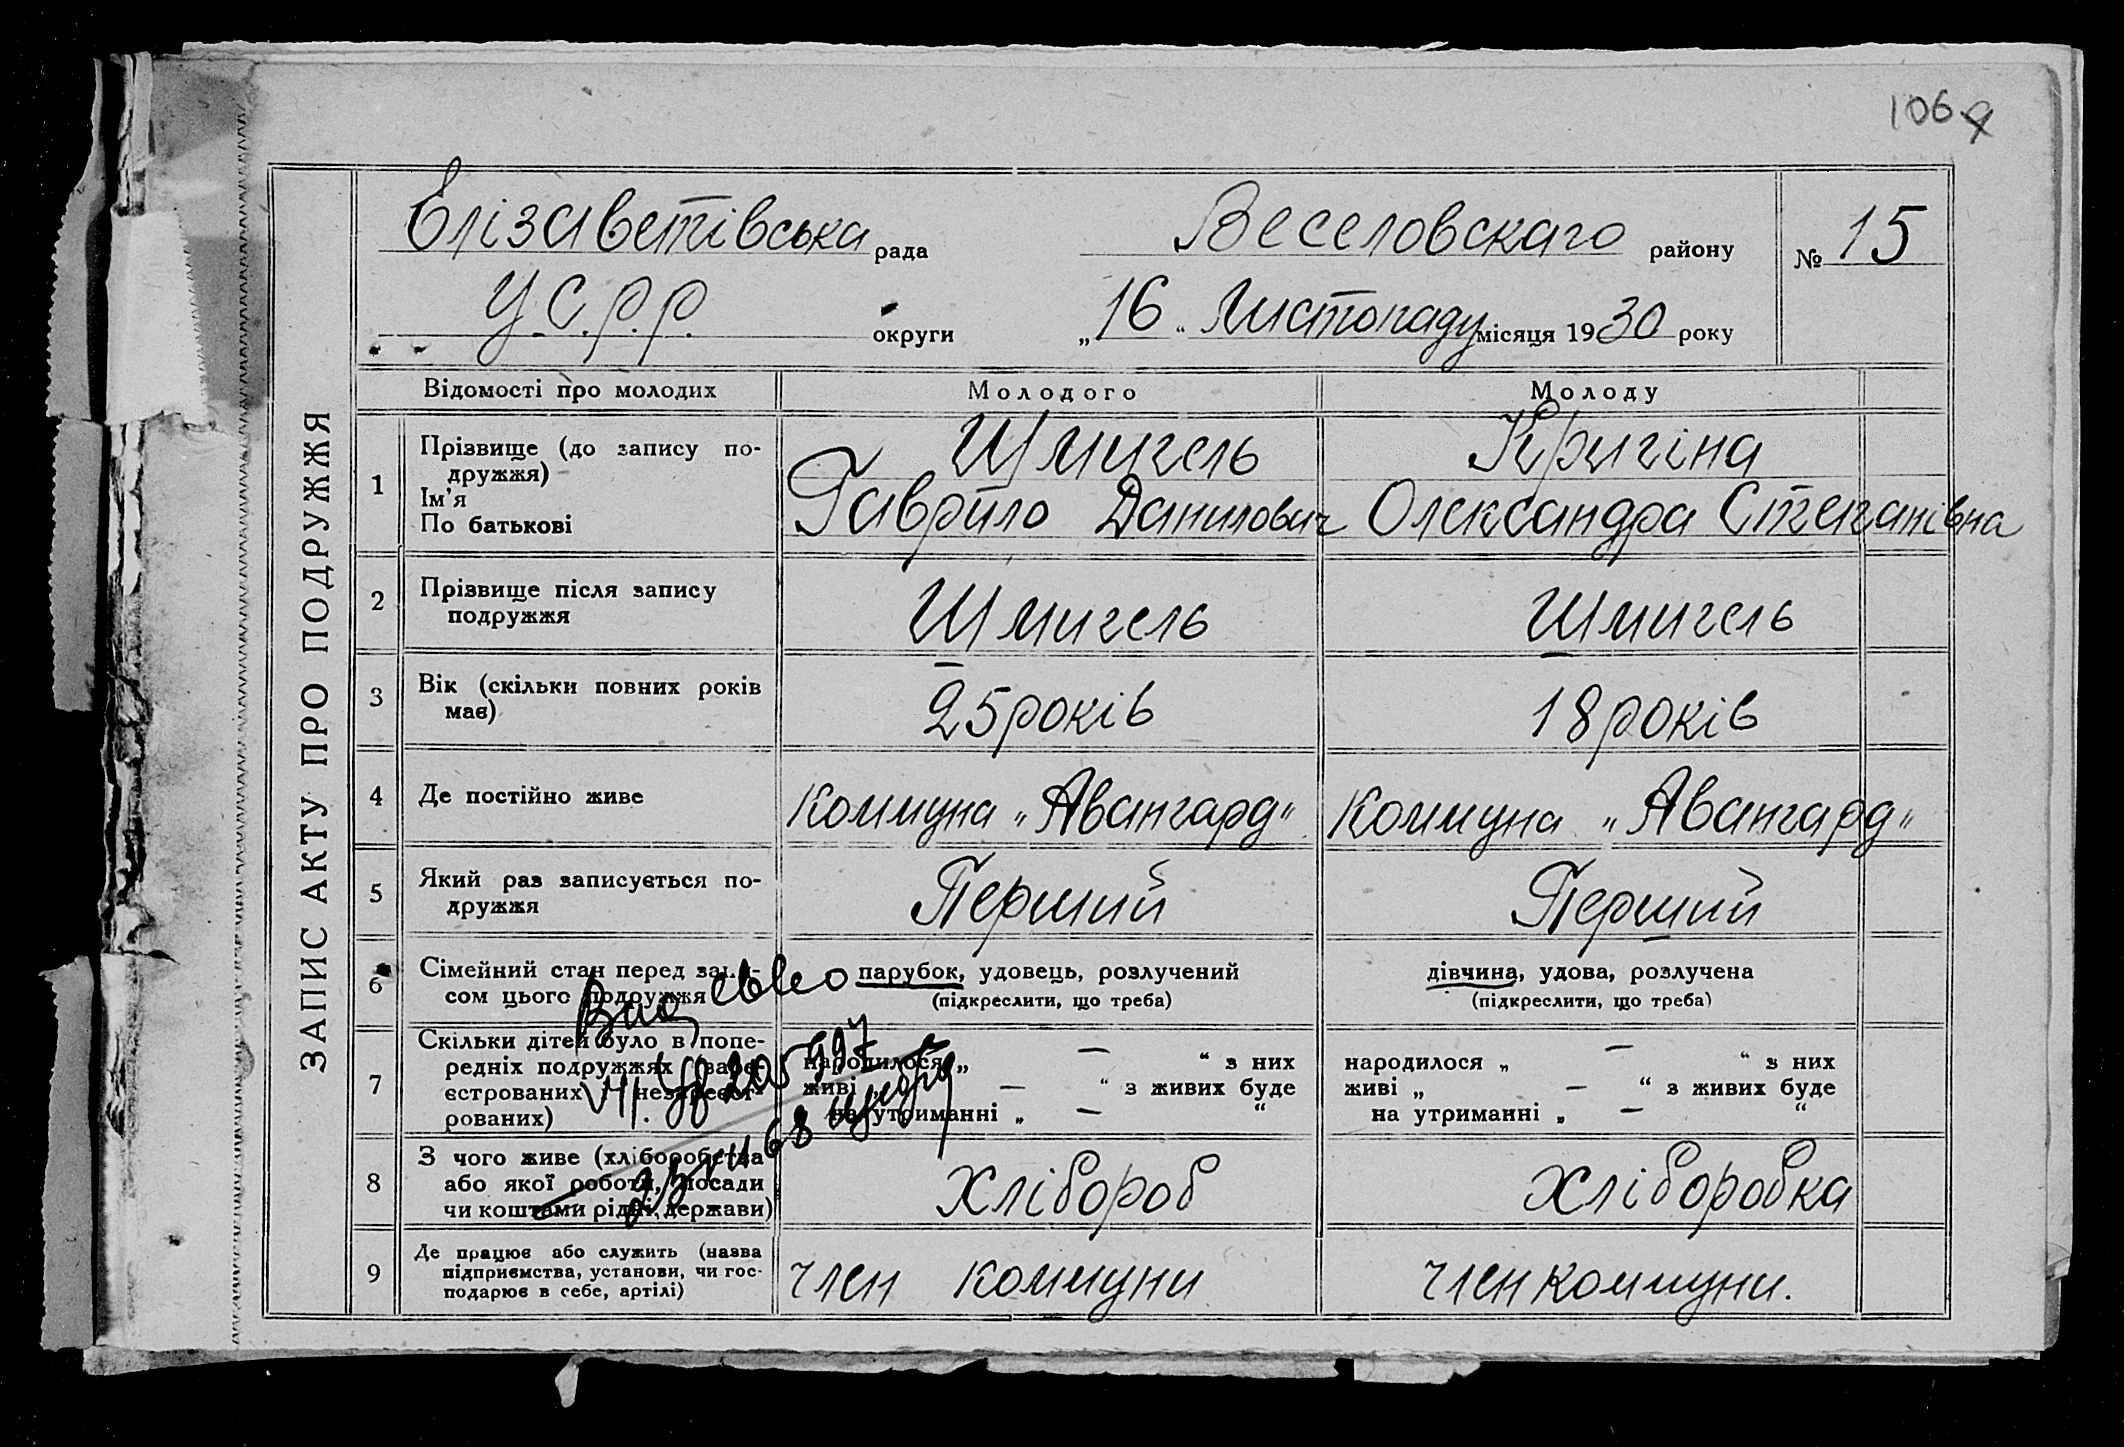 106
Єлізаветівська рада Веселовскаго району № 15
У.С.Р.Р. округи „16“ Листопаду місяця 1930 року
ЗАПИС АКТУ ПРО ПОДРУЖЖЯ
Відомості про молодих Молодого Молоду
1 Прізвище (до запису по-
дружжя)
Ім'я
По батькові
Шмигель
Гаврило Данилович
Кригіна
Олександра Степанівна
2 Прізвище після запису
подружжя
Шмигель Шмигель
3 Вік (скільки повних років
має)
25 років 18 років
4 Де постійно живе Коммуна „Авангард“ Коммуна „Авангард“
5 Який раз записується по-
дружжя
Перший Перший
6 Сімейний стан перед запи-
сом цього подружжя
парубок, удовець, розлучений
(підкреслити, що треба)
дівчина, удова, розлучена
(підкреслити, що треба)
7 Скільки дітей було в попе-
редніх подружжях (заре-
єстрованих і незареєст-
рованих)
народилося „ — “ з них
живі „ — “ з живих буде
на утриманні „ — “
народилося „ — “ з них
живі „ — “ з живих буде
на утриманні „ — “
8 З чого живе (хліборобства
або якої роботи, посади
чи коштами рідні, держави)
Хлібороб Хліборобка
9 Де працює або служить (назва
підприємства, установи, чи гос-
подарює в себе, артілі)
член коммуни член коммуни.